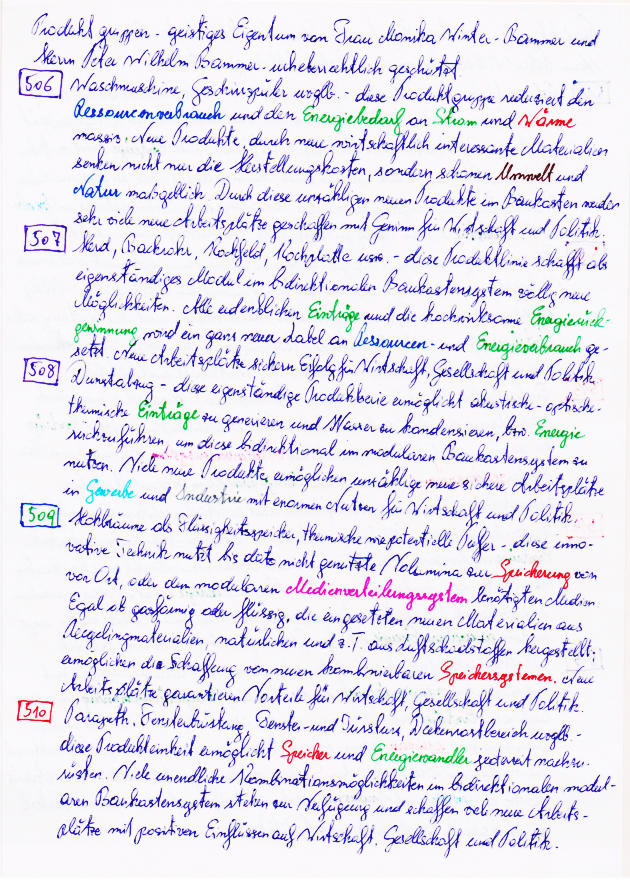 Produktgruppen - geistiges Eigentum von Frau Monika Winter-Bammer und
Herrn Peter Wilhelm Bammer - urheberrechtlich geschützt.
506 Waschmaschine, Geschirrspüler vglb. - diese Produktgruppe reduziert den
Ressourcenverbrauch und den Energiebedarf an Strom und Wärme
massiv. Neue Produkte, durch neue wirtschaftlich interessante Materialien
senken nicht nur die Herstellungskosten, sondern schonen Umwelt und
Natur maßgeblich. Durch diese unzähligen neuen Produkte im Baukasten werden
sehr viele neue Arbeitsplätze geschaffen mit Gewinn für Wirtschaft und Politik.
507 Herd, Backrohr, Kochfeld, Kochplatte usw. - diese Produktlinie schafft als
eigenständiges Modul im bidirektionalen Baukastensystem völlig neue
Möglichkeiten. Alle erdenklichen Einträge und die hochwirksame Energierück-
gewinnung wird ein ganz neuer Label an Ressourcen- und Energieverbrauch ge-
setzt. Neue Arbeitsplätze sichern Erfolg für Wirtschaft, Gesellschaft und Politik.
508 Dunstabzug - diese eigenständige Produktserie ermöglicht akustische-optische-
thermische Einträge zu generieren und Wasser zu kondensieren, bzw. Energie
rückzuführen, um diese bidirektional im modularen Baukastensystem zu
nutzen. Viele neue Produkte, ermöglichen unzählige neue sichere Arbeitsplätze
in Gewerbe und Industrie mit enormen Nutzen für Wirtschaft und Politik.
509 Hohlräume als Flüssigkeitsspeicher, thermische wie potentielle Puffer - diese inno-
vative Technik nutzt bis dato nicht genutzte Volumina zur Speicherung von
vor Ort, oder dem modularen Medienverteilungssystem benötigten Medien
Egal ob gasförmig oder flüssig, die eingesetzten neuen Materialien aus
Recyclingmaterialien, natürlichen und z.T. aus Luftschadstoffen hergestellt,
ermöglichen die Schaffung von neuen kombinierbaren Speichersystemen. Neue
Arbeitsplätze garantieren Vorteile für Wirtschaft, Gesellschaft und Politik.
510 Parapeth, Fensterbrüstung, Fenster- und Türsturz, Deckenrostbereich vglb. -
diese Produkteinheit ermöglicht Speicher und Energiewandler jederzeit nachzu-
rüsten. Viele unendliche Kombinationsmöglichkeiten im bidirektionalen modul-
aren Baukastensystem stehen zur Verfügung und schaffen viele neue Arbeits-
plätze mit positiven Einflüssen auf Wirtschaft, Gesellschaft und Politik.